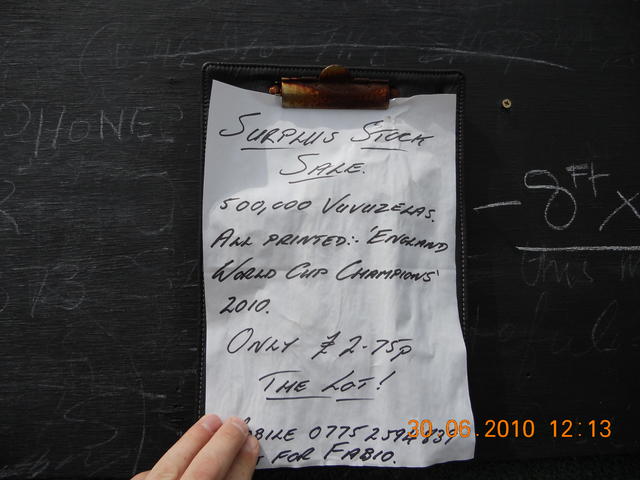 PHONE
SURPLUS STOCK
SALE.
500,000 VUVUZELAS.
ALL PRINTED:- 'ENGLAND
WORLD CUP CHAMPIONS'
2010.
ONLY £2.75p
THE LOT!
FOR FABIO.
- 8FT X
this
30.06.2010 12:13